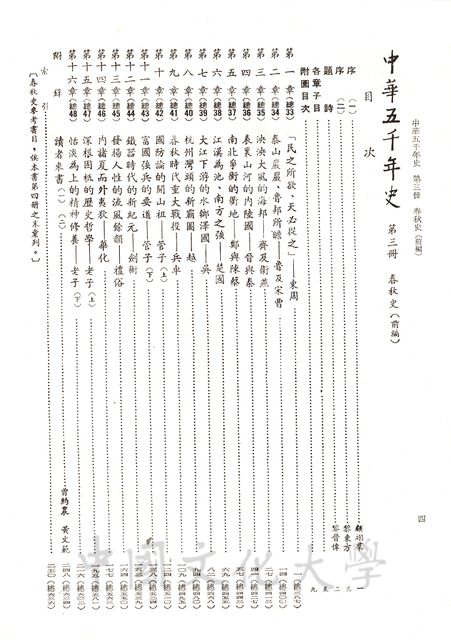 中華五千年史 第三冊 春秋史(前編)
四
中華五千年史 第三冊 春秋史(前編)
目次
序(一) 顧翊羣
序(二) 黎東方
題詩 黎晉偉
各章子目
附圖目次
第一章(總33)「民之所欲、天必從之」——東周
第二章(總34)泰山巖巖、魯邦所瞻——魯及宋曹
第三章(總35)泱泱大風的海邦——齊及衛燕
第四章(總36)表裏山河的內陸國——晉與秦
第五章(總37)南北爭衡的衝地——鄭與陳蔡
第六章(總38)江漢為池、南方之強——楚國
第七章(總39)大江下游的水鄉澤國——吳
第八章(總40)杭州灣頭的新霸國——越
第九章(總41)春秋時代重大戰役——兵車
第十章(總42)國防論的開山祖——管子(上)
第十一章(總43)富國強兵的要道——管子(下)
第十二章(總44)鐵器時代的新紀元——劍術
第十三章(總45)發揚人性的流風餘韻——禮俗
第十四章(總46)內諸夏而外夷狄——華化
第十五章(總47)深根固柢的歷史哲學——老子(上)
第十六章(總48)恬淡為上的精神修養——老子(下)
附錄 讀者來書(一)(二) 曾約農 黃文範
索引
〔春秋史參考書目,俟本書第四冊之末彙列。〕
中國文化大學